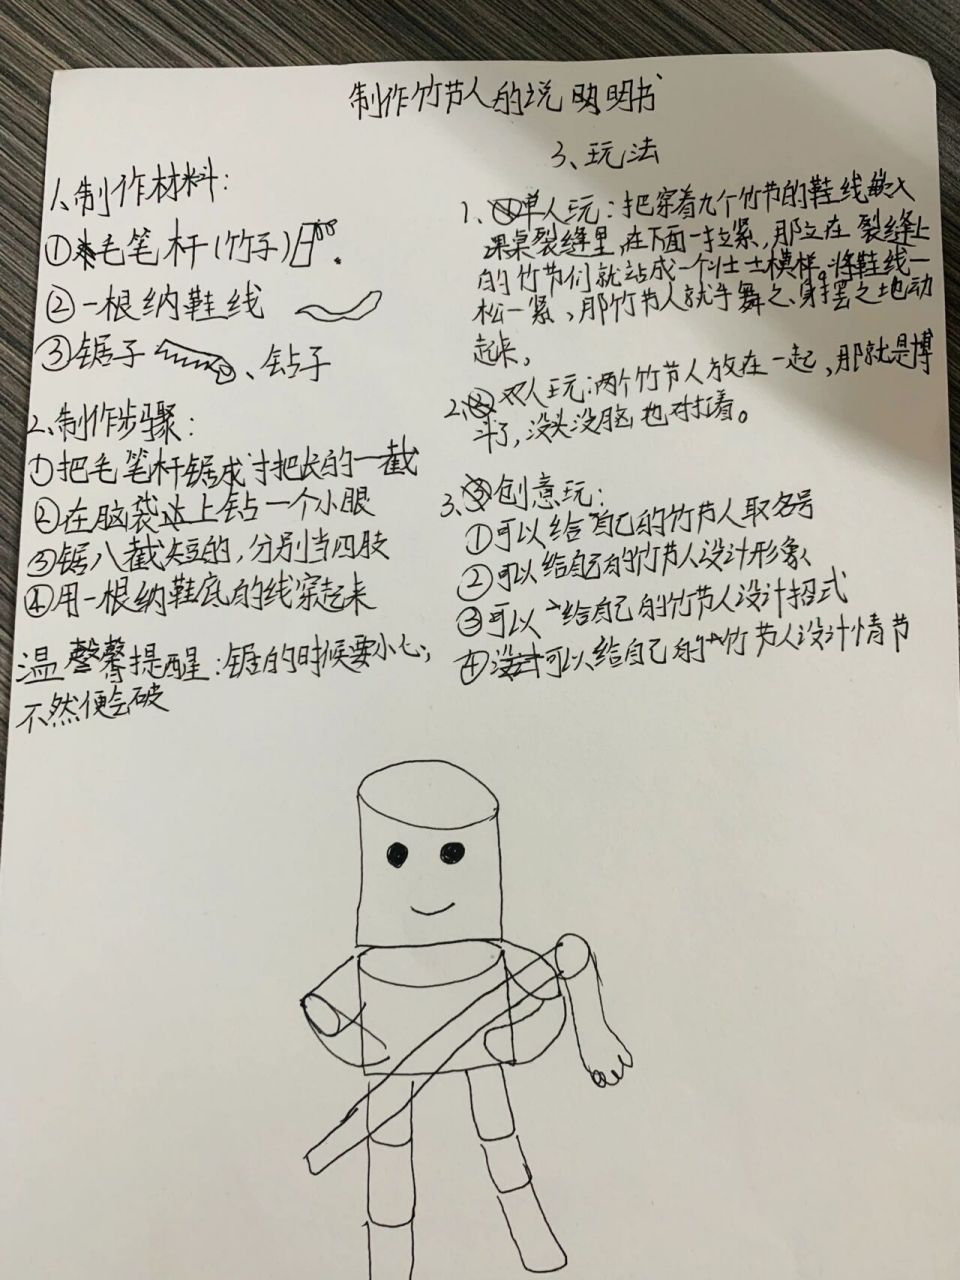 制作竹节人的说明书
1、制作材料:
①毛笔杆(竹子)
②一根纳鞋线
③锯子、钻子
2、制作步骤:
①把毛笔杆锯成寸把长的一截
②在脑袋上钻一个小眼
③锯八截短的,分别当四肢
④用一根纳鞋底的线穿起来
温馨提醒:锯的时候要小心,
不然便会破
3、玩法
1、单人玩:把穿着九个竹节的鞋线嵌入
课桌裂缝里,在下面一拉紧,那立在裂缝上
的竹节们就站成一个壮士模样。将鞋线一
松一紧,那竹节人就手舞之、身摆之地动
起来。
2、双人玩:两个竹节人放在一起,那就是搏
斗了,没头没脑也对打着。
3、创意玩:
①可以给自己的竹节人取名号
②可以给自己的竹节人设计形象
③可以给自己的竹节人设计招式
④可以给自己的竹节人设计情节